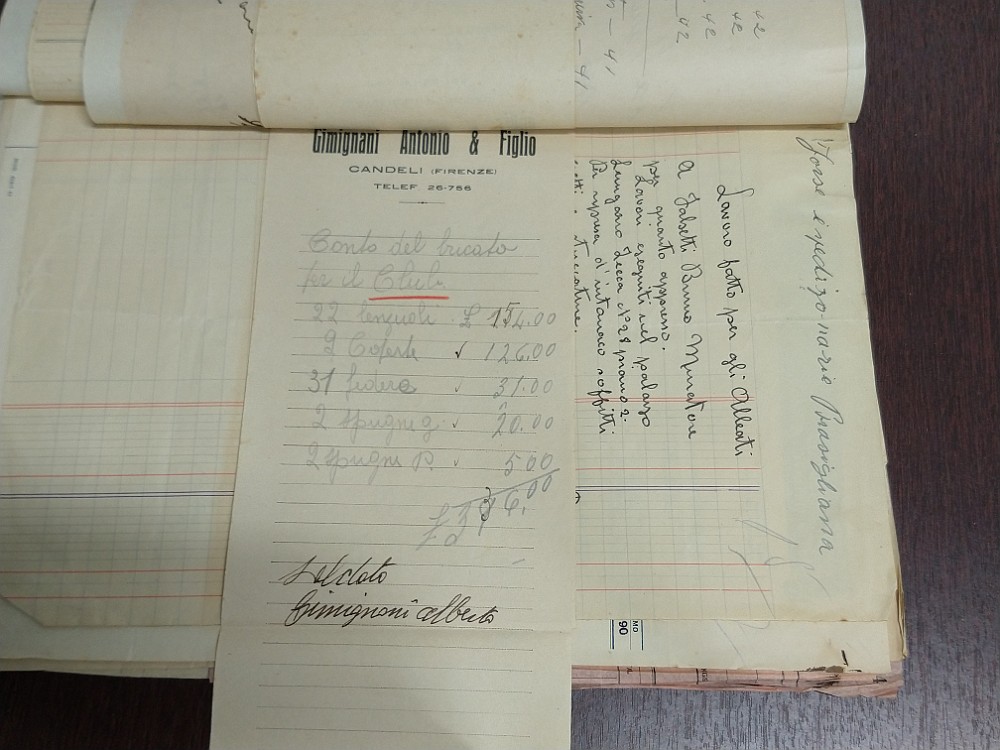 Gimignani Antonio & Figlio
CANDELI (FIRENZE)
TELEF 26-756
Conto del bucato
per il Club
22 lenzuoli £ 154.00
9 Coperte 126.00
31 federe 31.00
2 spugne g. 20.00
2 spugne P. 5.00
£ 336.00
Saldato
Gimignani Alberto
Lavoro fatto per gli Alleati
A Falsetti Bruno Muratore
per quanto appresso.
Lavori eseguiti nel palazzo
Lungarno Zecca N° 28 piano 2.
Per ripresa d'intonaco soffitti
Forse
42
42
42
41
41
MO
90